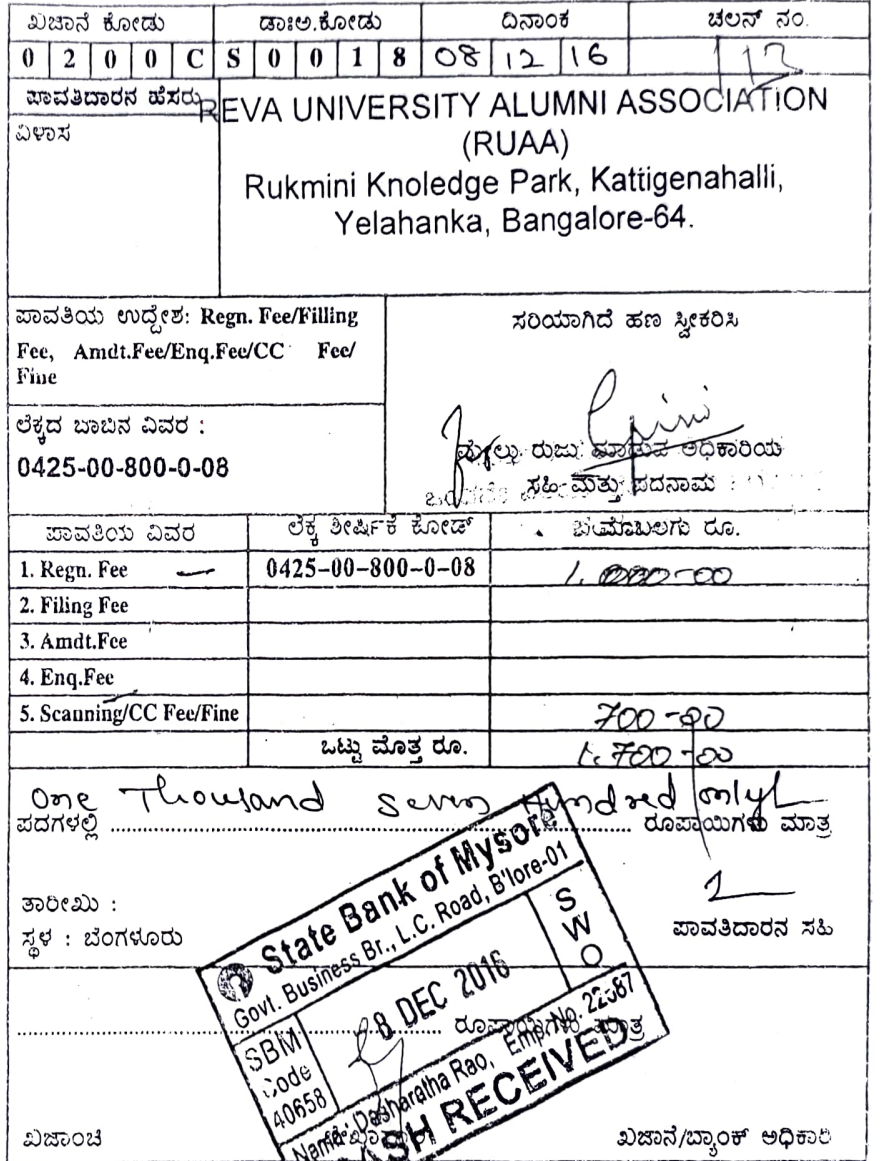 ಖಜಾನೆ ಕೋಡು ಡಾಃಅ.ಕೋಡು ದಿನಾಂಕ ಚಲನ್ ನಂ.
0 2 0 0 C S 0 0 1 8 08 12 16
ಪಾವತಿದಾರನ ಹೆಸರು REVA UNIVERSITY ALUMNI ASSOCIATION
ವಿಳಾಸ (RUAA)
Rukmini Knoledge Park, Kattigenahalli,
Yelahanka, Bangalore-64.
ಪಾವತಿಯ ಉದ್ದೇಶ: Regn. Fee/Filling
Fee, Amdt.Fee/Enq.Fee/CC Fee/
Fine
ಸರಿಯಾಗಿದೆ ಹಣ ಸ್ವೀಕರಿಸಿ
ಲೆಕ್ಕದ ಬಾಬಿನ ವಿವರ :
0425-00-800-0-08
ಮೇಲು ರುಜು ಮಾಡುವ ಅಧಿಕಾರಿಯ
ಸಹಿ ಮತ್ತು ಪದನಾಮ
ಪಾವತಿಯ ವಿವರ ಲೆಕ್ಕ ಶೀರ್ಷಿಕೆ ಕೋಡ್ ಮೊಬಲಗು ರೂ.
1. Regn. Fee 0425-00-800-0-08 1,000-00
2. Filing Fee
3. Amdt.Fee
4. Enq.Fee
5. Scanning/CC Fee/Fine 700-00
ಒಟ್ಟು ಮೊತ್ತ ರೂ. 1,700-00
One Thousand Seven Hundred only
ಪದಗಳಲ್ಲಿ ಮಾತ್ರ ರೂಪಾಯಿಗಳು
ತಾರೀಖು :
ಸ್ಥಳ : ಬೆಂಗಳೂರು ಪಾವತಿದಾರನ ಸಹಿ
State Bank of Mysore
Govt. Business Br., L.C. Road, B'lore-01
SWO
8 DEC 2016
SBM
Code
40658
ರೂಪಾಯಿಗಳು ಮಾತ್ರ
Name: Dasharatha Rao, Emp. No.
CASH RECEIVED
ಖಜಾಂಚಿ ಖಜಾನೆ/ಬ್ಯಾಂಕ್ ಅಧಿಕಾರಿ